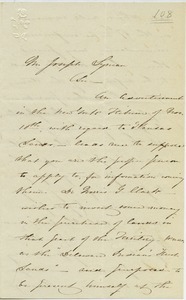 108
Mr Joseph
Sir
An advertisement
in the New York Tribune of Nov
18th, with regard to Kansas
Lands — leads me to suppose
that you are the proper person
to apply to, for information concerning
them. Dr
wishes to invest some money
in the purchase of lands in
that part of the Territory known
as the Delaware Indian Trust
Lands" — and proposes to
be present himself at the